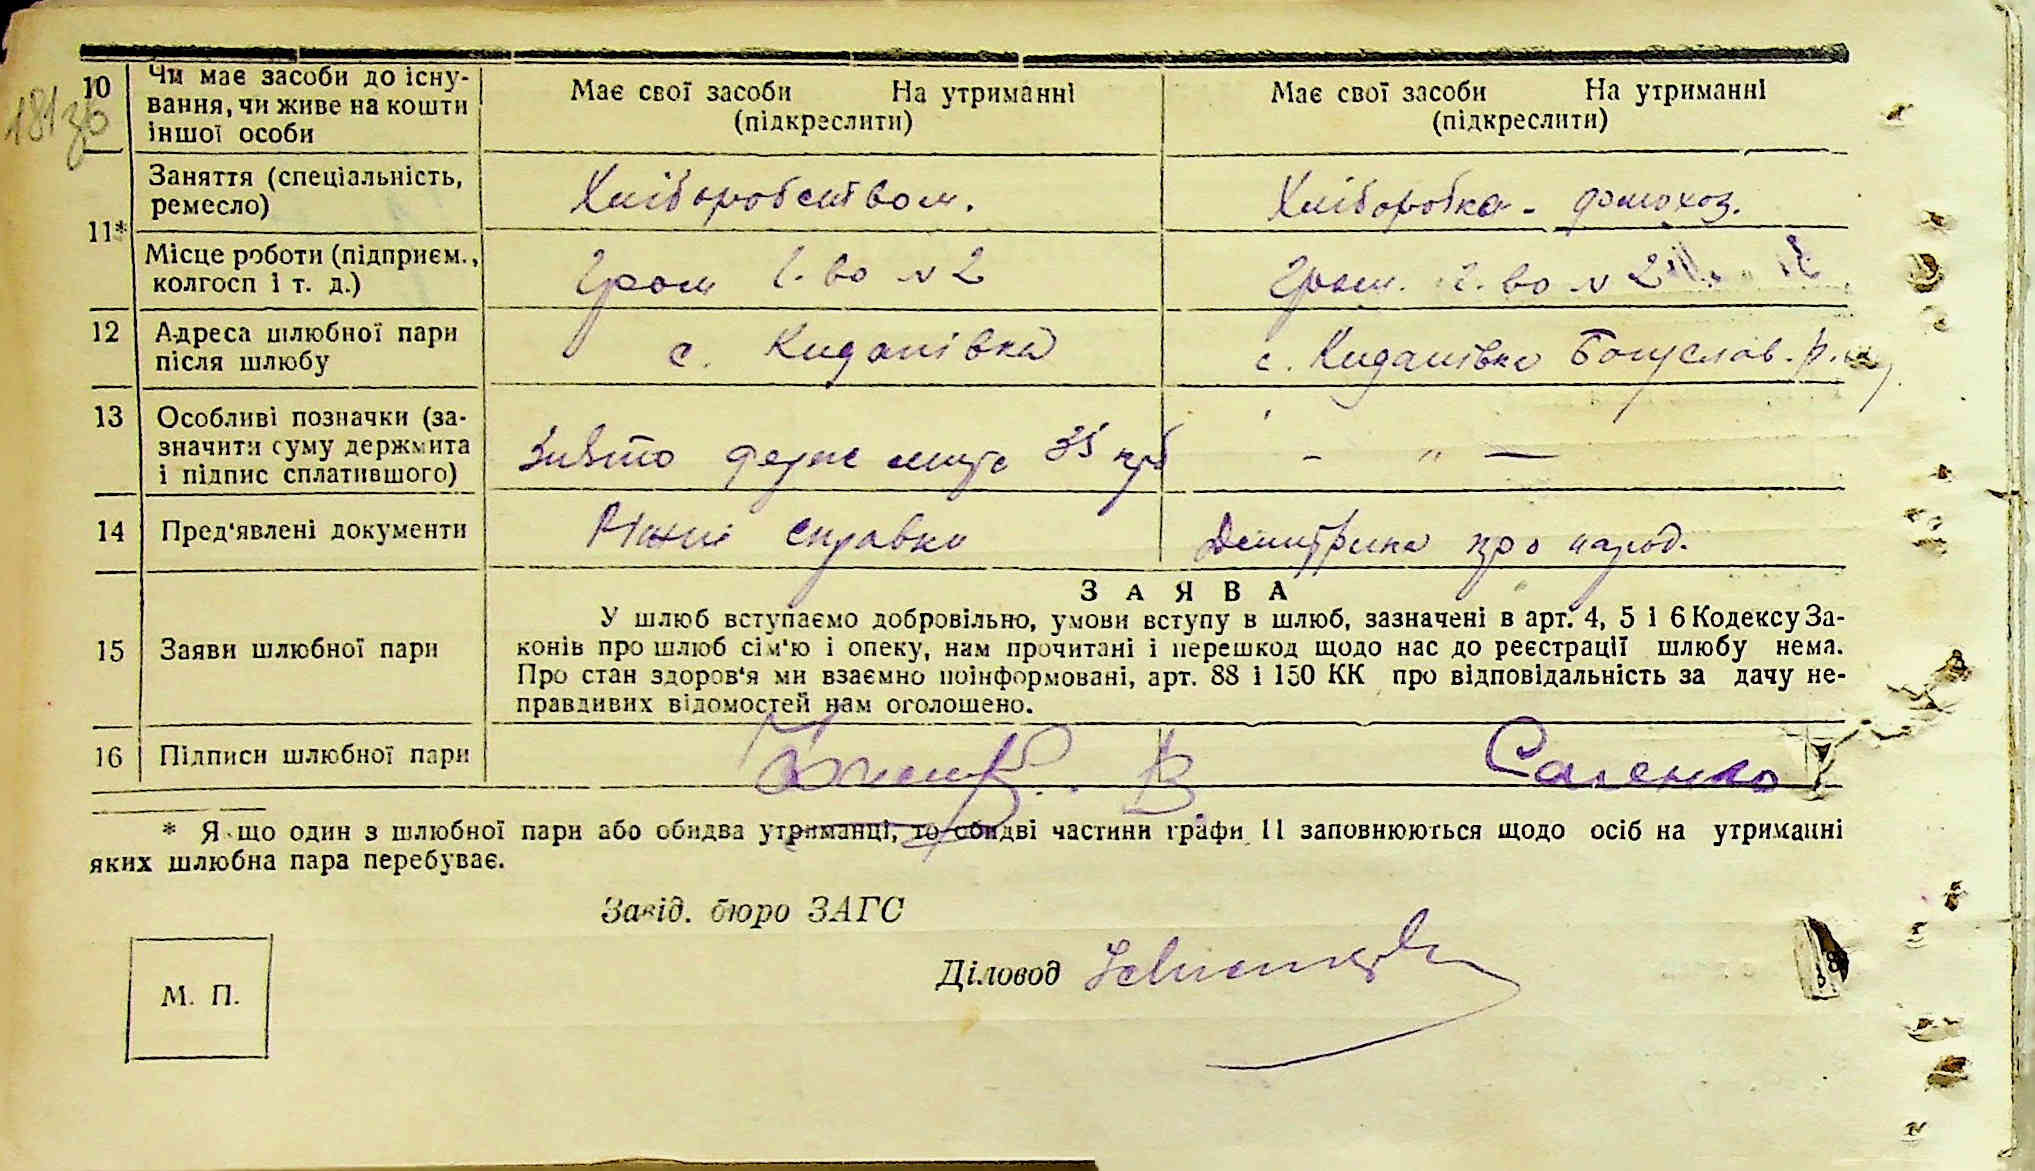 181зв
10 Чи має засоби до існу-
вання, чи живе на кошти
іншої особи
Має свої засоби На утриманні
(підкреслити)
Має свої засоби На утриманні
(підкреслити)
11*
Заняття (спеціальність,
ремесло)
Хліборобством.
Хліборобка - домохоз.
Місце роботи (підприєм.,
колгосп і т. д.)
Гром г. во № 2
Гром. г. во № 2
12 Адреса шлюбної пари
після шлюбу
с. Киданівка
с. Киданівка Богуслав. р.
13 Особливі позначки (за-
значити суму держмита
і підпис сплатившого)
Знято держ мита 35 крб
- " —
14 Пред'явлені документи
справки
про народ.
15 Заяви шлюбної пари
ЗАЯВА
У шлюб вступаємо добровільно, умови вступу в шлюб, зазначені в арт. 4, 5 і 6 Кодексу За-
конів про шлюб сім'ю і опеку, нам прочитані і перешкод щодо нас до реєстрації шлюбу нема.
Про стан здоров'я ми взаємно поінформовані, арт. 88 і 150 КК про відповідальність за дачу не-
правдивих відомостей нам оголошено.
16 Підписи шлюбної пари
В.
Саченко
* Якщо один з шлюбної пари або обидва утриманці, то обидві частини графи 11 заповнюються щодо осіб на утриманні
яких шлюбна пара перебуває.
Завід. бюро ЗАГС
Діловод
М. П.